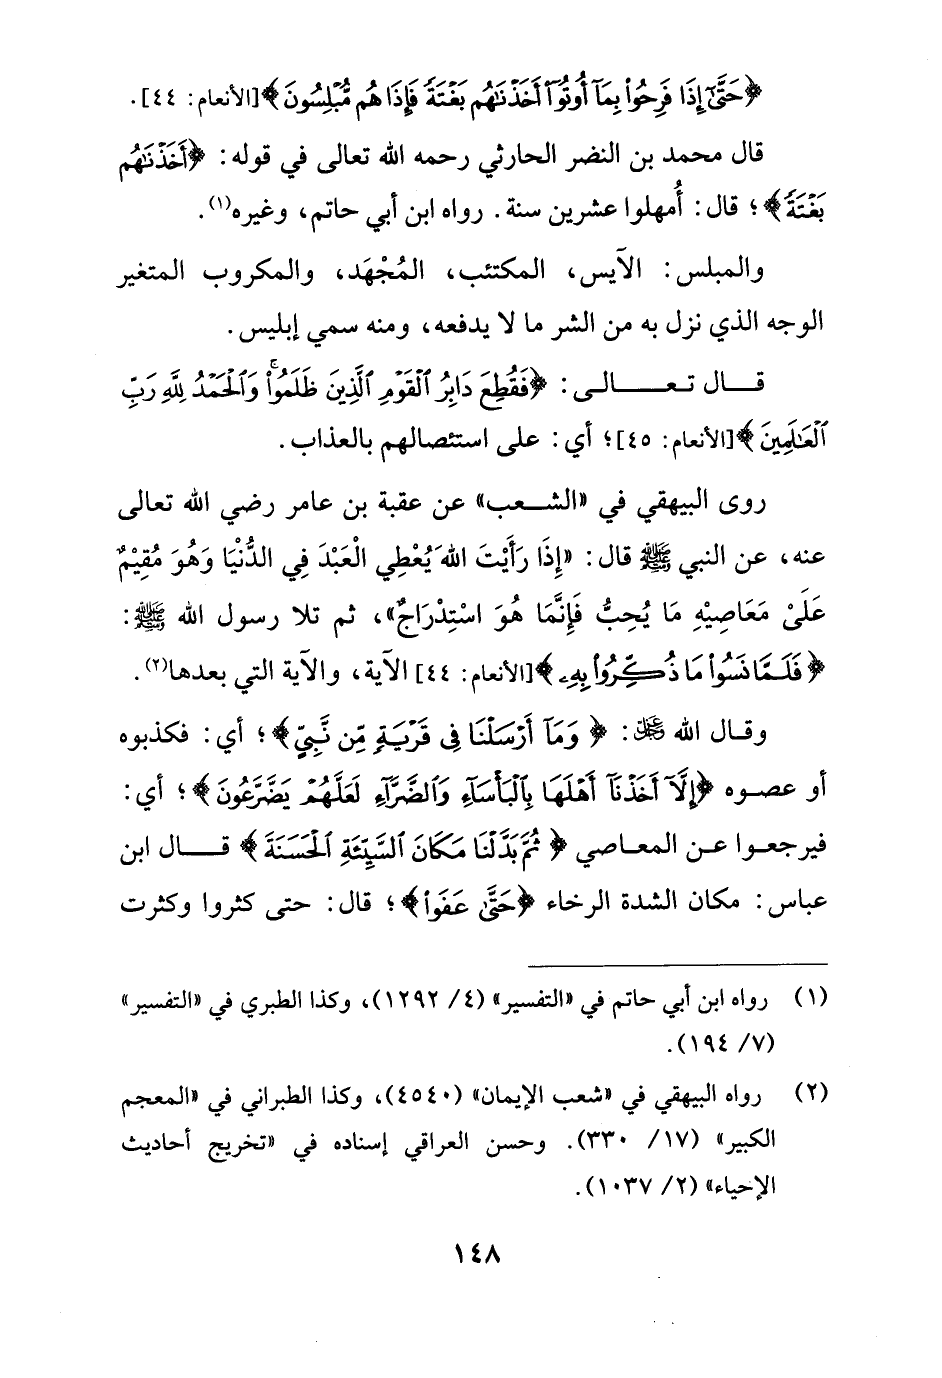 ﴿حَتَّىٰٓ إِذَا فَرِحُوا۟ بِمَآ أُوتُوٓا۟ أَخَذْنَٰهُم بَغْتَةً فَإِذَا هُم مُّبْلِسُونَ﴾[الأنعام: ٤٤].
قال محمد بن النضر الحارثي رحمه الله تعالى في قوله: ﴿أَخَذْنَٰهُم
بَغْتَةً﴾؛ قال: أُمهلوا عشرين سنة. رواه ابن أبي حاتم، وغيره(١).
والمبلس: الآيس، المكتئب، المُجْهَد، والمكروب المتغير
الوجه الذي نزل به من الشر ما لا يدفعه، ومنه سمي إبليس.
قال تعالى: ﴿فَقُطِعَ دَابِرُ ٱلْقَوْمِ ٱلَّذِينَ ظَلَمُوا۟ۚ وَٱلْحَمْدُ لِلَّهِ رَبِّ
ٱلْعَٰلَمِينَ﴾[الأنعام: ٤٥]؛ أي: على استئصالهم بالعذاب.
روى البيهقي في «الشعب» عن عقبة بن عامر رضي الله تعالى
عنه، عن النبي ﷺ قال: «إِذَا رَأَيْتَ اللهَ يُعْطِي الْعَبْدَ فِي الدُّنْيَا وَهُوَ مُقِيْمٌ
عَلَىْ مَعَاصِيْهِ مَا يُحِبُّ فَإِنَّمَا هُوَ اسْتِدْرَاجٌ»، ثم تلا رسول الله ﷺ:
﴿فَلَمَّا نَسُوا۟ مَا ذُكِّرُوا۟ بِهِۦ﴾[الأنعام: ٤٤] الآية، والآية التي بعدها(٢).
وقال الله ﷻ: ﴿وَمَآ أَرْسَلْنَا فِى قَرْيَةٍ مِّن نَّبِىٍّ﴾؛ أي: فكذبوه
أو عصوه ﴿إِلَّآ أَخَذْنَآ أَهْلَهَا بِٱلْبَأْسَآءِ وَٱلضَّرَّآءِ لَعَلَّهُمْ يَضَّرَّعُونَ﴾؛ أي:
فيرجعوا عن المعاصي ﴿ثُمَّ بَدَّلْنَا مَكَانَ ٱلسَّيِّئَةِ ٱلْحَسَنَةَ﴾ قال ابن
عباس: مكان الشدة الرخاء ﴿حَتَّىٰ عَفَوا۟﴾؛ قال: حتى كثروا وكثرت
(١) رواه ابن أبي حاتم في «التفسير» (٤/ ١٢٩٢)، وكذا الطبري في «التفسير»
(٧/ ١٩٤).
(٢) رواه البيهقي في «شعب الإيمان» (٤٥٤٠)، وكذا الطبراني في «المعجم
الكبير» (١٧/ ٣٣٠). وحسن العراقي إسناده في «تخريج أحاديث
الإحياء» (٢/ ١٠٣٧).
١٤٨